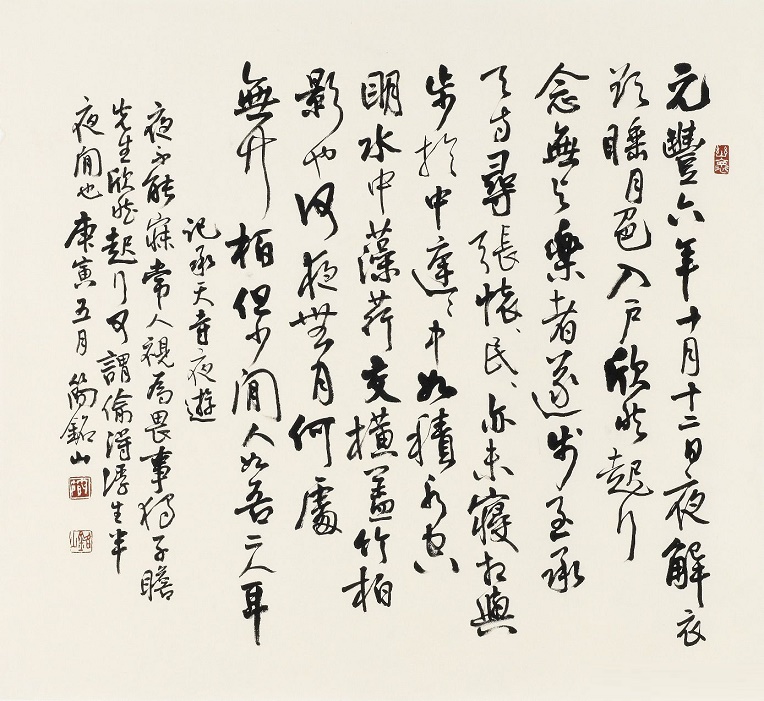 元豐六年十月十二日夜解衣
欲睡月色入戶欣然起行
念無与樂者遂步至承
天寺尋張懷、民、亦未寢相與
步於中庭、中如積水空
明水中藻荇交橫蓋竹柏
影也何夜無月何處
無竹柏但少閒人如吾二人耳
記承天寺夜遊
夜不能寐常人視為畏事獨子瞻
先生欣然起行可謂偷得浮生半
夜閒也 庚寅五月 簡銘山